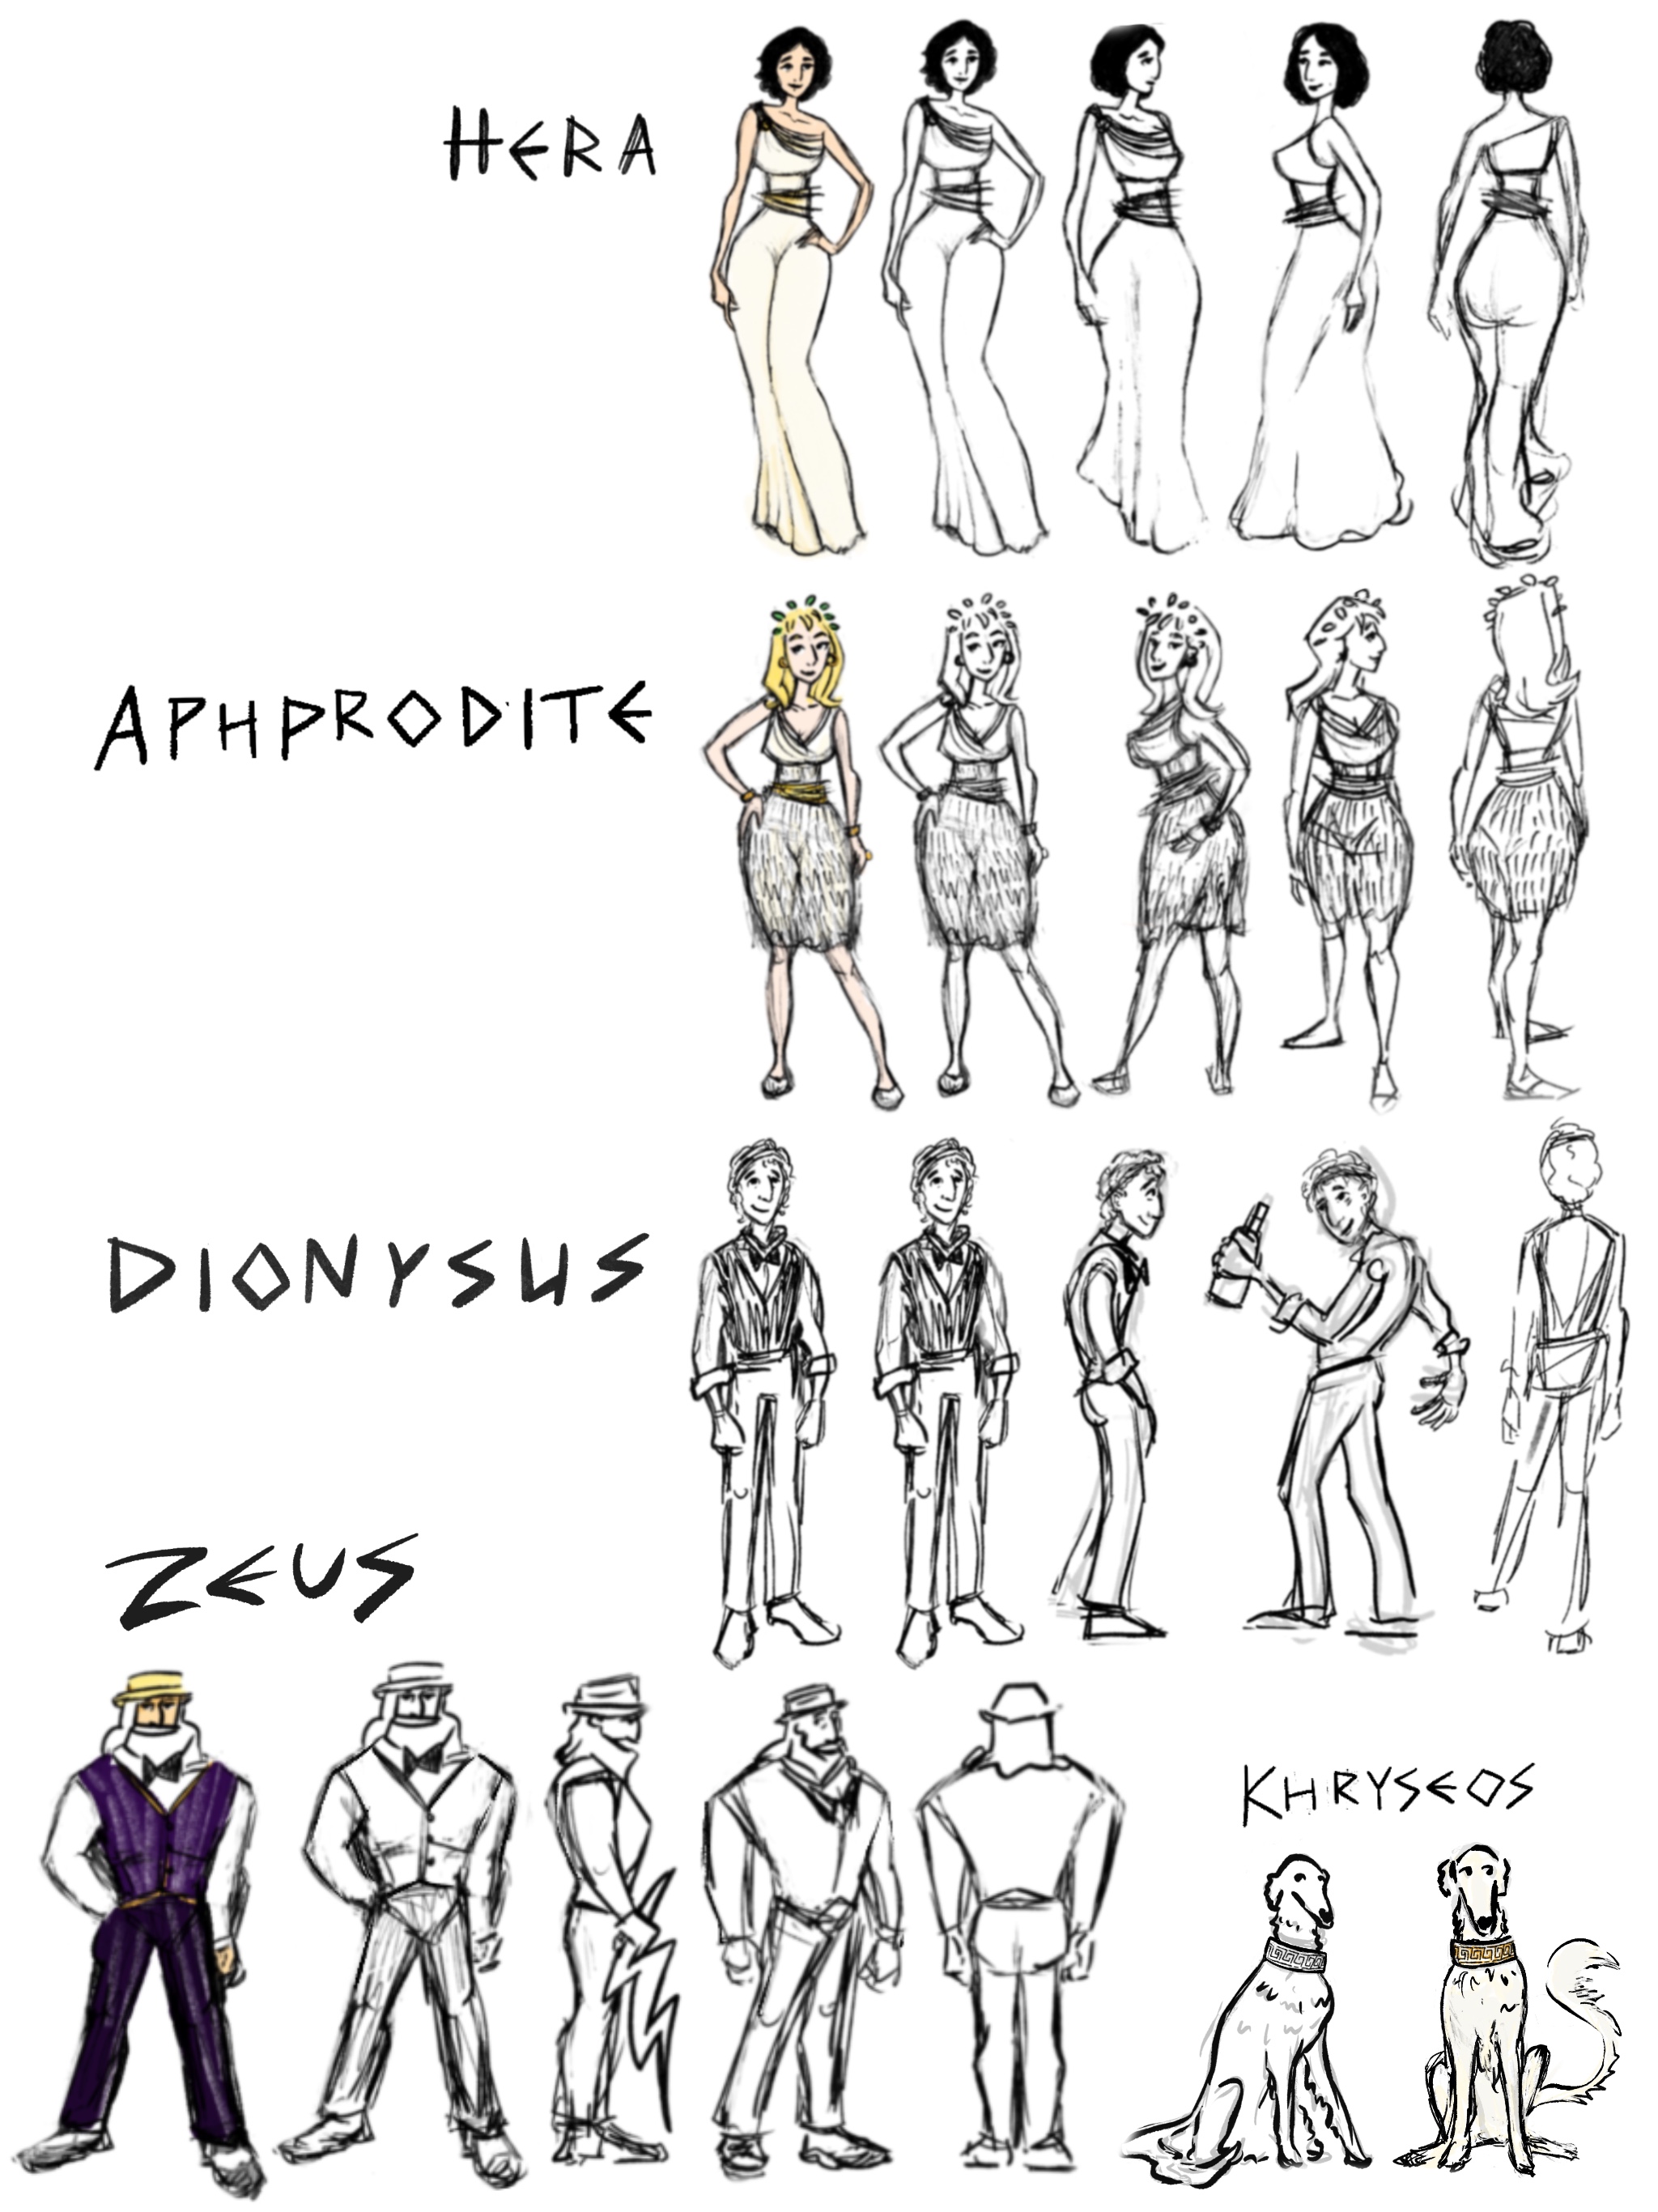 HERA
APHPRODITE
DIONYSUS
ZEUS
KHRYSEOS